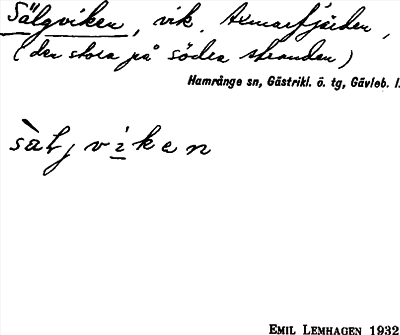 Sälgviken, vik, Axmarfjärden,
(den stora på södra stranden)
Hamrånge sn, Gästrikl. ö. tg, Gävleb. l.
sàlj viken
EMIL LEMHAGEN 1932